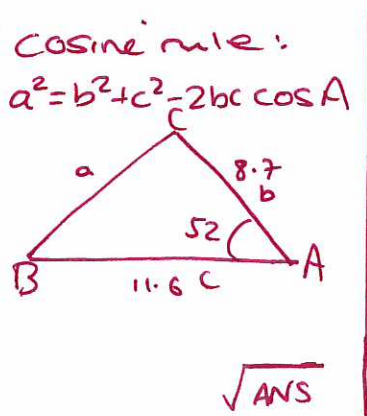 cosine rule:
a²=b²+c²-2bc cos A
C
a
8.7
b
52
B
A
11.6 c
√ANS